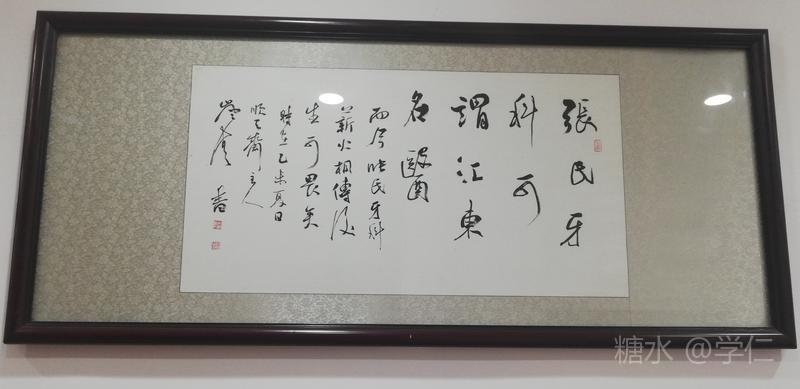 張氏牙
科可
謂江東
名醫
而今張氏牙科
薪火相傳後
生可畏矣
時在乙未夏日
順之齋主人
書
糖水 @学仁